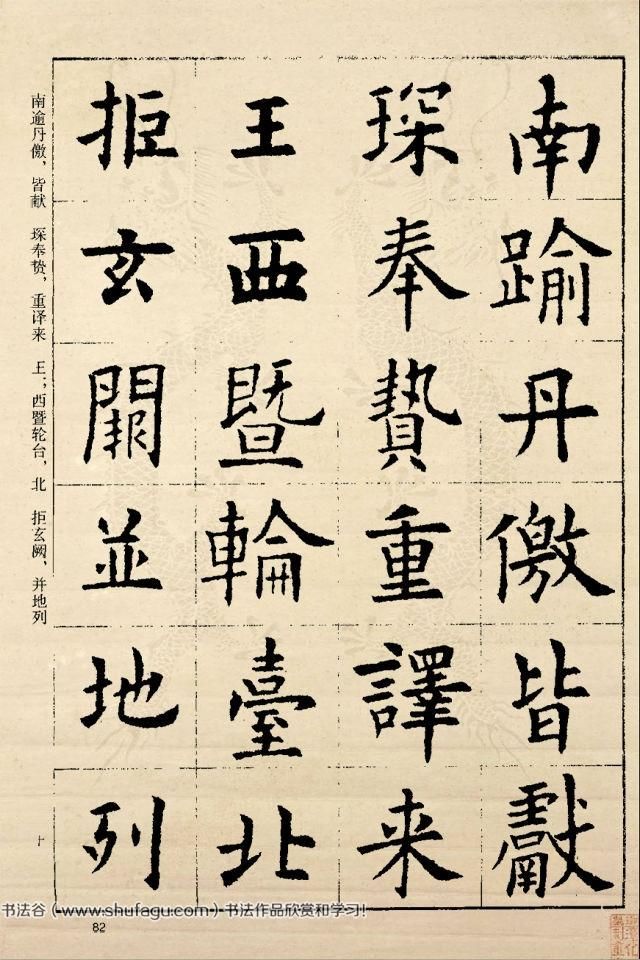 南踰丹儌皆獻
琛奉贄重譯来
王西暨輪臺北
拒玄闕並地列
南逾丹儌，皆献 琛奉贽，重译来 王；西暨轮台，北 拒玄阙，并地列
十
书法谷（www.shufagu.com）书法作品欣赏和学习！
82